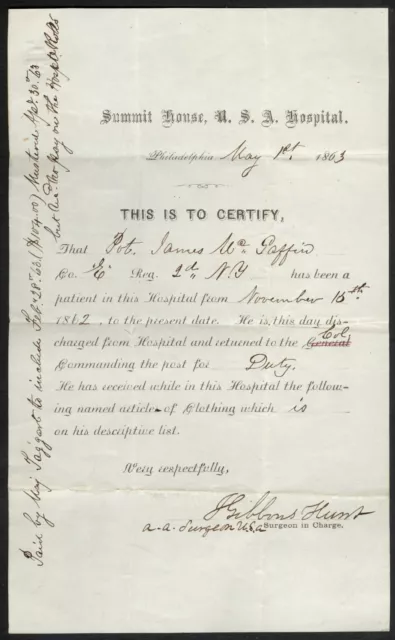 Summit House, U. S. A. Hospital.
Philadelphia May 1st. 1863
THIS IS TO CERTIFY,
That Pvt. James Mc Gaffin
Co. "E" Reg. 2d N.Y has been a
patient in this Hospital from November 15th.
1862, to the present date. He is, this day dis-
charged from Hospital and returned to the General Col.
Commanding the post for Duty.
He has received while in this Hospital the follow-
ing named articles of Clothing which is
on his descriptive list.
Very respectfully,
J Gibbons Hunt
a. a. Surgeon U.S.a Surgeon in Charge.
Paid by Maj Taggart to include Feb. 28th. 63. ($104.00) Mustered Apr. 30th. 63
but no pay on the Hospital Rolls